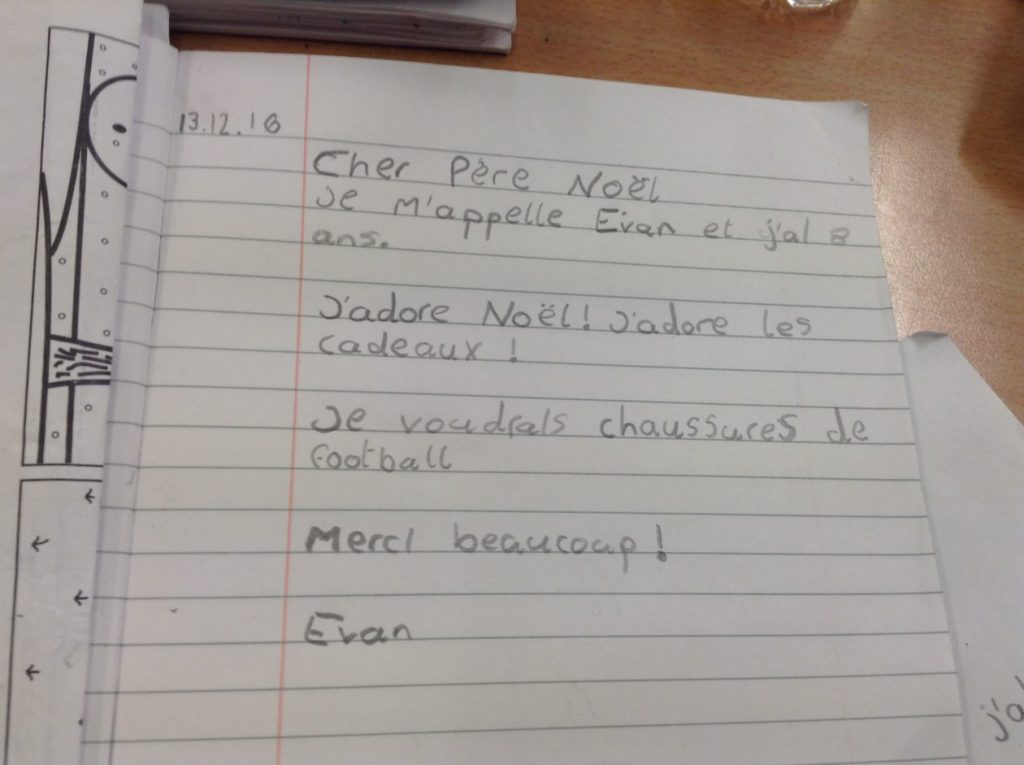 13.12.18
Cher Père Noël
Je m'appelle Evan et j'ai 8
ans.
J'adore Noël! J'adore les
cadeaux !
Je voudrais chaussures de
football
Merci beaucoup!
Evan
j'a